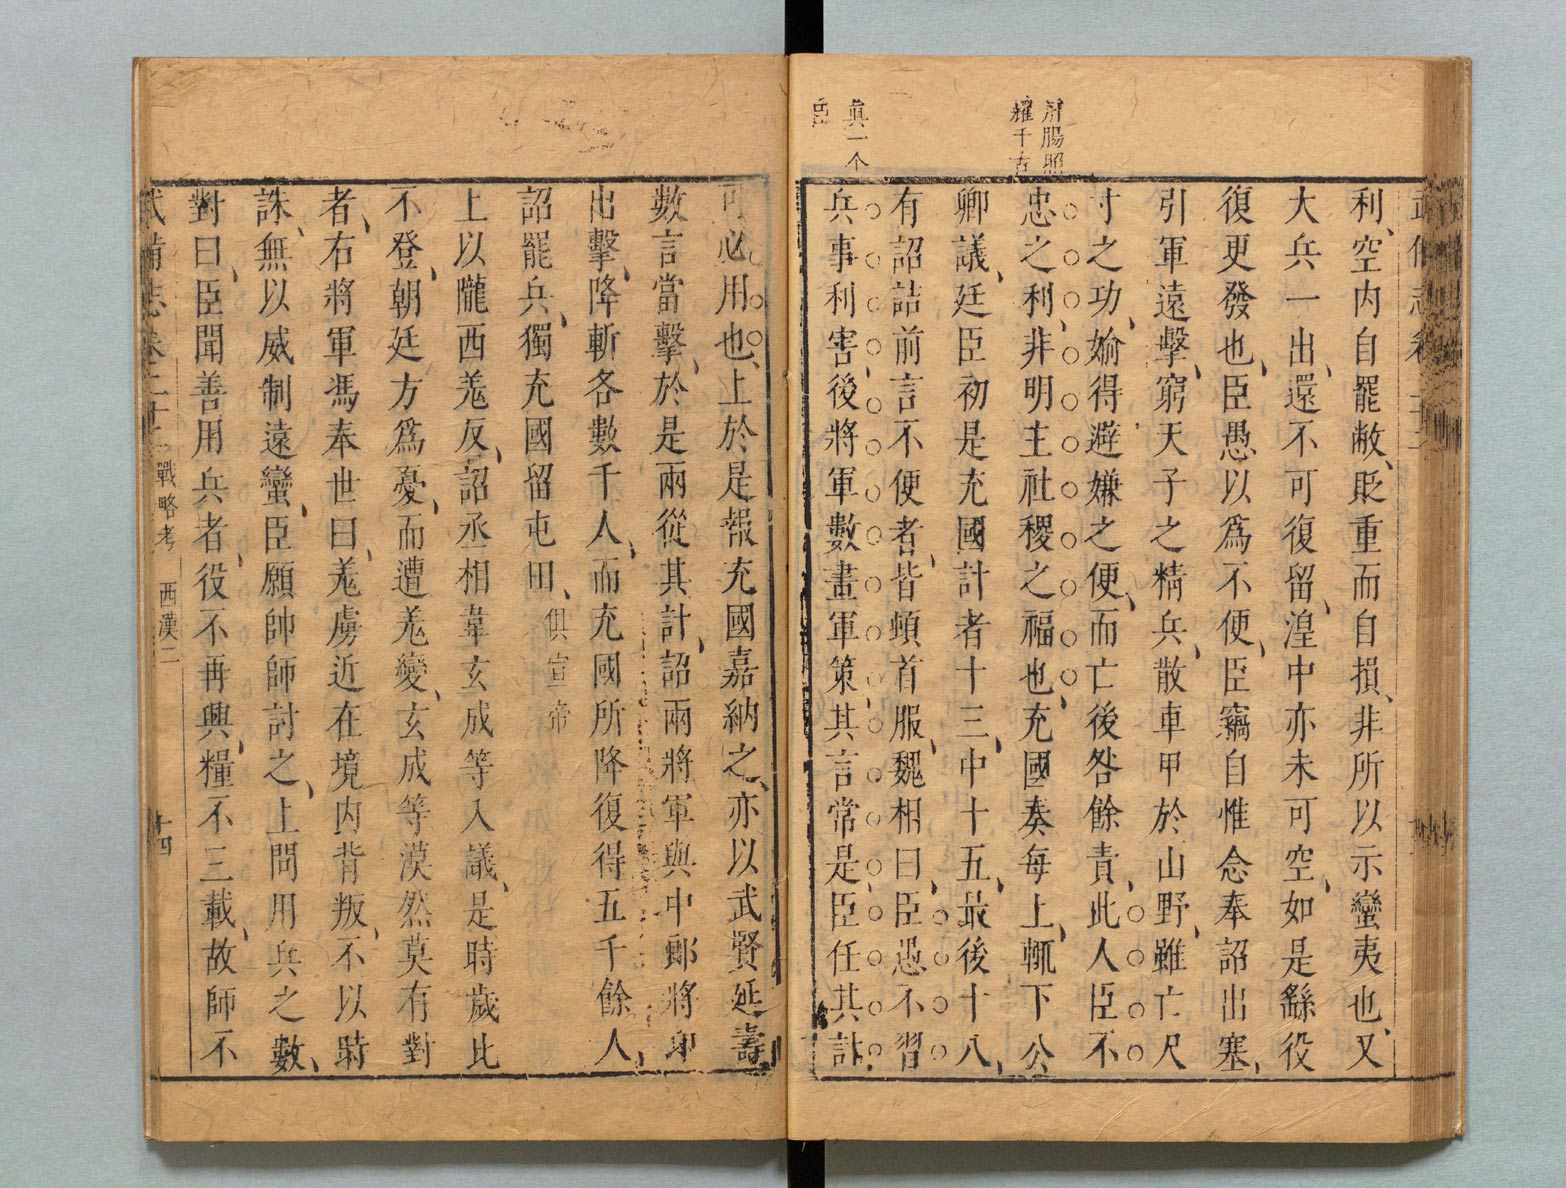 肝腸照
耀千古
眞一个
臣
武備志卷二十二
利、空內自罷敝、貶重而自損、非所以示蠻夷也、又
大兵一出、還不可復留、湟中亦未可空、如是繇役
復更發也、臣愚以爲不便、臣竊自惟念奉詔出塞、
引軍遠擊、窮天子之精兵、散車甲於山野、雖亡尺
寸之功、婾得避嫌之便、而亡後咎餘責、此人臣不
忠之利、非明主社稷之福也、充國奏每上、輒下公
卿議、廷臣初是充國計者十三、中十五、最後十八、
有詔詰前言不便者、皆頓首服、魏相曰、臣愚不習
兵事利害、後將軍數畫軍策、其言常是、臣任其計
可必用也、上於是報充國嘉納之、亦以武賢延壽
數言當擊、於是兩從其計、詔兩將軍與中郎將卬
出擊、降斬各數千人、而充國所降復得五千餘人、
詔罷兵、獨充國留屯田、俱宣帝
上以隴西羌反、詔丞相韋玄成等入議、是時歲比
不登、朝廷方爲憂、而遭羌變、玄成等漠然莫有對
者、右將軍馮奉世曰、羌虜近在境內背叛、不以時
誅、無以威制遠蠻、臣願帥師討之、上問用兵之數、
對曰、臣聞善用兵者、役不再興、糧不三載、故師不
武備志卷二十二 戰略考 西漢二 十四